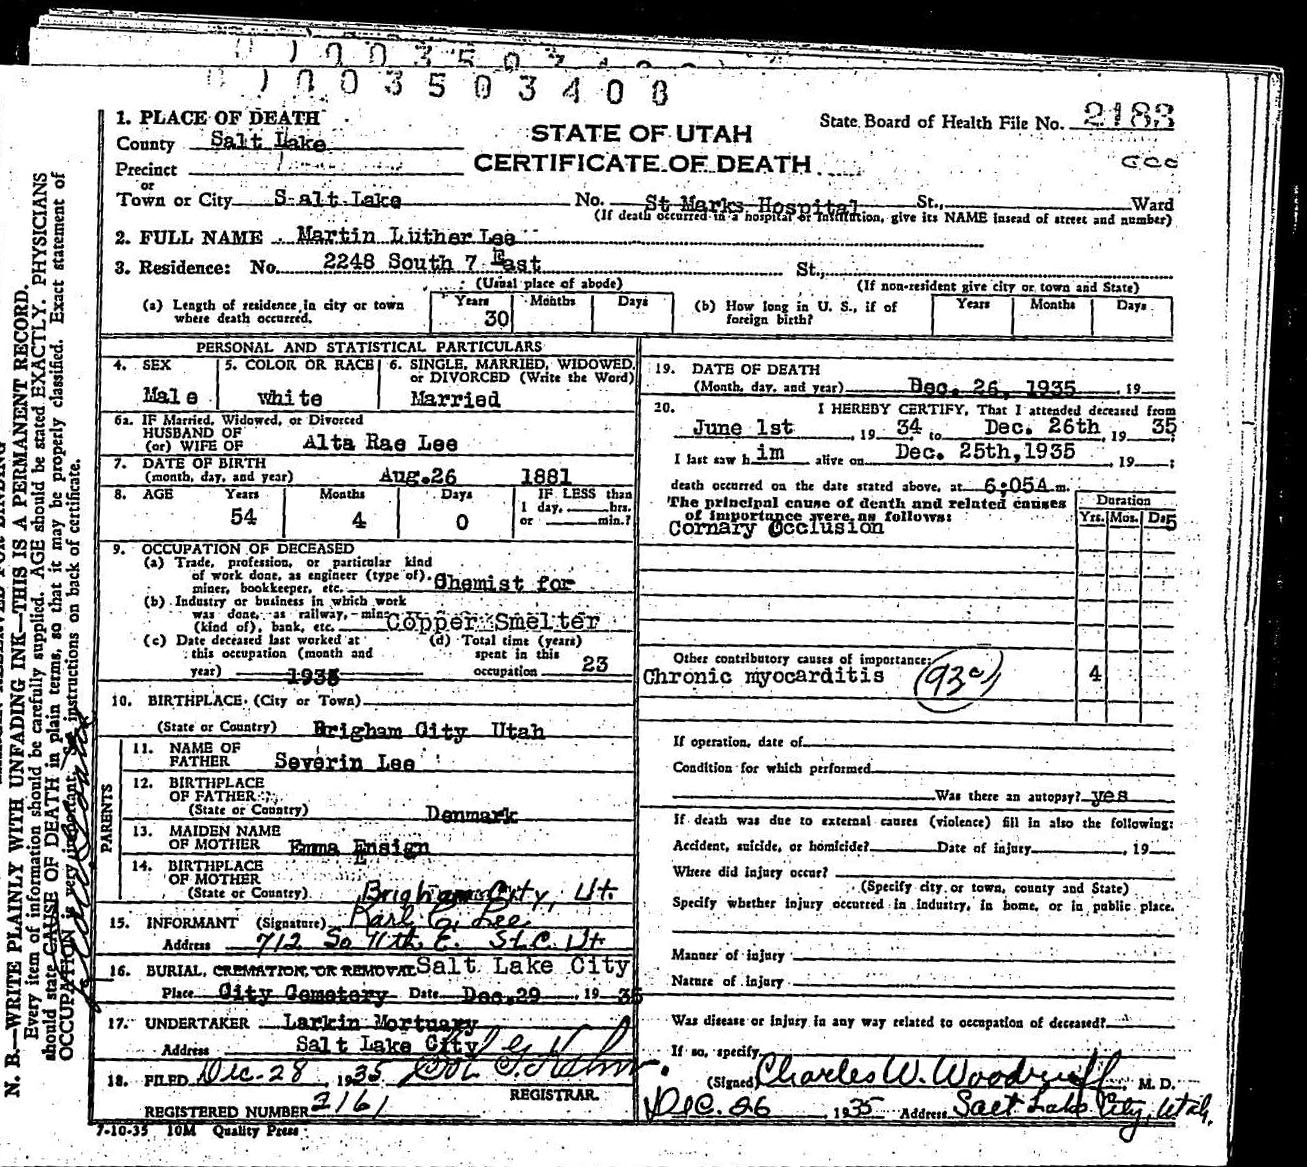 0035034
003503408
1. PLACE OF DEATH
County Salt Lake
STATE OF UTAH
CERTIFICATE OF DEATH
State Board of Health File No. 2183
Precinct
or
Town or City Salt Lake No. St Marks Hospital St., Ward
(If death occurred in a hospital or institution, give its NAME insead of street and number)
2. FULL NAME Martin Luther Lee
3. Residence: No. 2248 South 7 East St.,
(Usual place of abode) (If non-resident give city or town and State)
(a) Length of residence in city or town where death occurred. Years 30 Months Days
(b) How long in U. S., if of foreign birth? Years Months Days
PERSONAL AND STATISTICAL PARTICULARS
4. SEX Male
5. COLOR OR RACE white
6. SINGLE, MARRIED, WIDOWED, or DIVORCED (Write the Word) Married
6a. IF Married, Widowed, or Divorced
HUSBAND OF
(or) WIFE OF Alta Rae Lee
7. DATE OF BIRTH
(month, day, and year) Aug.26 1881
8. AGE Years 54 Months 4 Days 0 IF LESS than 1 day, hrs. or min.?
9. OCCUPATION OF DECEASED
(a) Trade, profession, or particular kind
of work done, as engineer (type of),
miner, bookkeeper, etc. Chemist for
(b) Industry or business in which work
was done, as railway, mine
(kind of), bank, etc. Copper Smelter
(c) Date deceased last worked at
this occupation (month and
year) 1935
(d) Total time (years)
spent in this
occupation 23
10. BIRTHPLACE (City or Town)
(State or Country) Brigham City Utah
PARENTS
11. NAME OF
FATHER Severin Lee
12. BIRTHPLACE
OF FATHER
(State or Country) Denmark
13. MAIDEN NAME
OF MOTHER Emma Ensign
14. BIRTHPLACE
OF MOTHER
(State or Country) Brigham City, Ut.
15. INFORMANT (Signature) Karl E. Lee
Address 712 So 11th E. S.L.C. Ut
16. BURIAL, CREMATION, OR REMOVAL Salt Lake City
Place City Cemetery Date Dec.29 19 35
17. UNDERTAKER Larkin Mortuary
Address Salt Lake City
18. FILED Dec. 28, 1935
REGISTRAR.
REGISTERED NUMBER 2161
7-10-35 10M Quality Press
19. DATE OF DEATH
(Month, day, and year) Dec. 26, 1935 , 19
20. I HEREBY CERTIFY, That I attended deceased from
June 1st , 19 34 to Dec. 26th , 19 35
I last saw h im alive on Dec. 25th,1935 , 19 ;
death occurred on the date stated above, at 6;05A m.
The principal cause of death and related causes
of importance were as follows:
Duration
Yrs. Mos. Ds.
Cornary Occlusion 5
Other contributory causes of importance:
Chronic myocarditis 4
If operation, date of
Condition for which performed
Was there an autopsy? yes
If death was due to external causes (violence) fill in also the following:
Accident, suicide, or homicide? Date of injury , 19
Where did injury occur?
(Specify city or town, county and State)
Specify whether injury occurred in industry, in home, or in public place.
Manner of injury
Nature of injury
Was disease or injury in any way related to occupation of deceased?
If so, specify
(Signed) Charles W. Woodruff, M. D.
Dec. 26 , 1935 Address Salt Lake City, Utah.
N. B.—WRITE PLAINLY WITH UNFADING INK—THIS IS A PERMANENT RECORD.
Every item of information should be carefully supplied. AGE should be stated EXACTLY. PHYSICIANS
should state CAUSE OF DEATH in plain terms, so that it may be properly classified. Exact statement of
OCCUPATION is very important. See instructions on back of certificate.